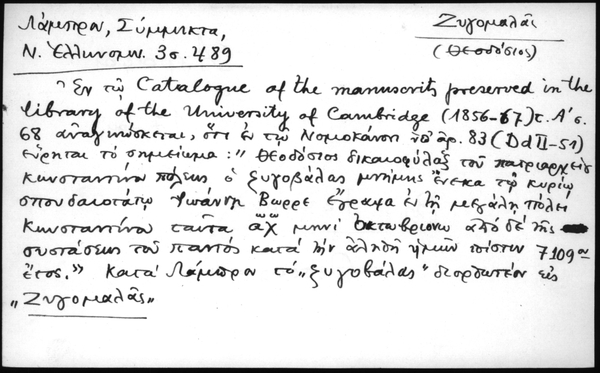 Λάμπρου, Σύμμικτα,
Ν. Ἑλληνομν. 3 σ. 489
Ζυγομαλᾶς
(Θεοδόσιος)
Ἐν τῷ Catalogue of the manuscrits preserved in the
library of the University of Cambridge (1856-67) τ. Α' σ.
68 ἀναγινώσκεται, ὅτι ἐν τῷ Νομοκάνονι ὑπ' ἀρ. 83 (Dd II-51)
εὕρηται τὸ σημείωμα: "Θεοδόσιος δικαιοφύλαξ τοῦ πατριαρχείου
Κωνσταντίνου πόλεως ὁ ξυγοβάλας μνήμης ἕνεκα τῷ κυρίῳ
σπουδαιοτάτῳ Ἰωάννῃ Βωρρε ἔγραψα ἐν τῇ μεγάλῃ πόλει
Κωνσταντίνου ταῦτα ἀχ μηνὶ Ὀκτωβρίου ἀπὸ δὲ τῆς
συστάσεως τοῦ παντὸς κατὰ τὴν ἀληθῆ ἡμῶν πίστιν 7109ον
ἔτος." Κατὰ Λάμπρον τὸ „ξυγοβάλας" διορθωτέον εἰς
„Ζυγομαλᾶς"